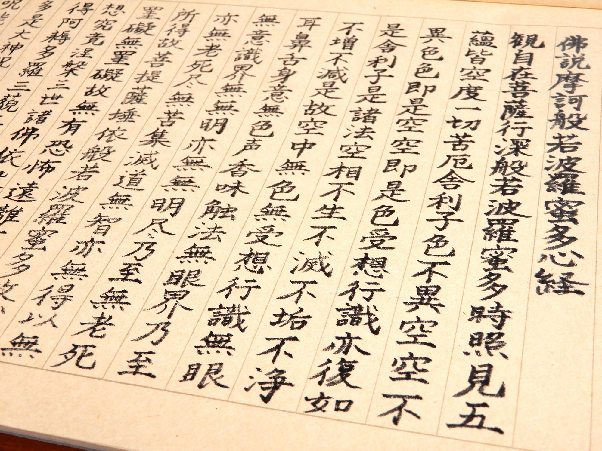 佛説摩訶般若波羅蜜多心経
観自在菩薩行深般若波羅蜜多時照見五
蘊皆空度一切苦厄舎利子色不異空空不
異色色即是空空即是色受想行識亦復如
是舎利子是諸法空相不生不滅不垢不浄
不増不減是故空中無色無受想行識無眼
耳鼻舌身意無色声香味触法無眼界乃至
無意識界無無明亦無無明尽乃至無老死
亦無老死尽無苦集滅道無智亦無得以無
所得故菩提薩埵依般若波羅蜜多故
罣礙無罣礙故無有恐怖遠離
想究竟涅槃三世諸佛依
得阿耨多羅三藐
多是大神